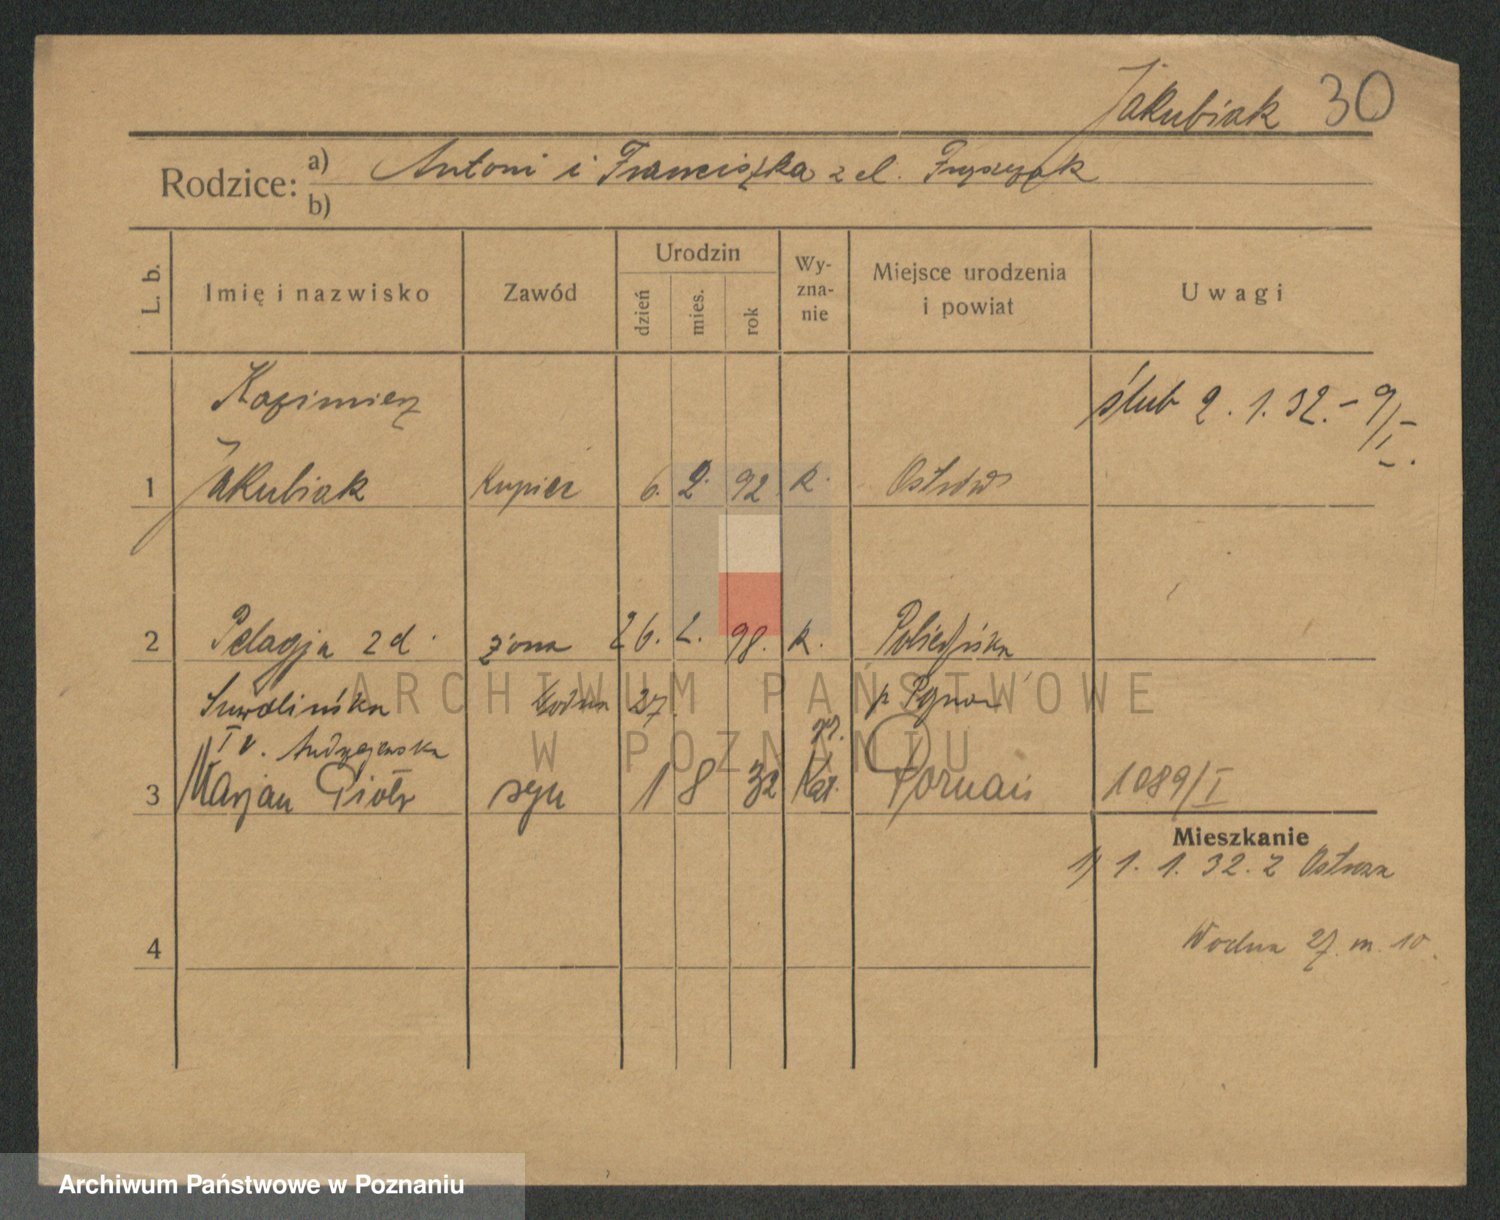 Jakubiak 30
Rodzice: a) Antoni i Franciszka z d.
b)
L. b. Imię i nazwisko Zawód Urodzin dzień mies. rok Wy-zna-nie Miejsce urodzenia i powiat Uwagi
Kazimierz ślub 2. 1. 32. – 9/I.
1 Jakubiak kupiec 6. 2. 92 k. Ostrów
2 Pelagja z d. żona 26. 2. 98. k.
Suwalińska Wodna 27. p Pznań
I v. Andrzejewska
3 Marjan Piotr syn 1 8 32 kat. Poznań 1089/I
Mieszkanie
1) 1. 1. 32. z Ostrowa
Wodna 27. m. 10.
4
ARCHIWUM PAŃSTWOWE
W POZNANIU
Archiwum Państwowe w Poznaniu